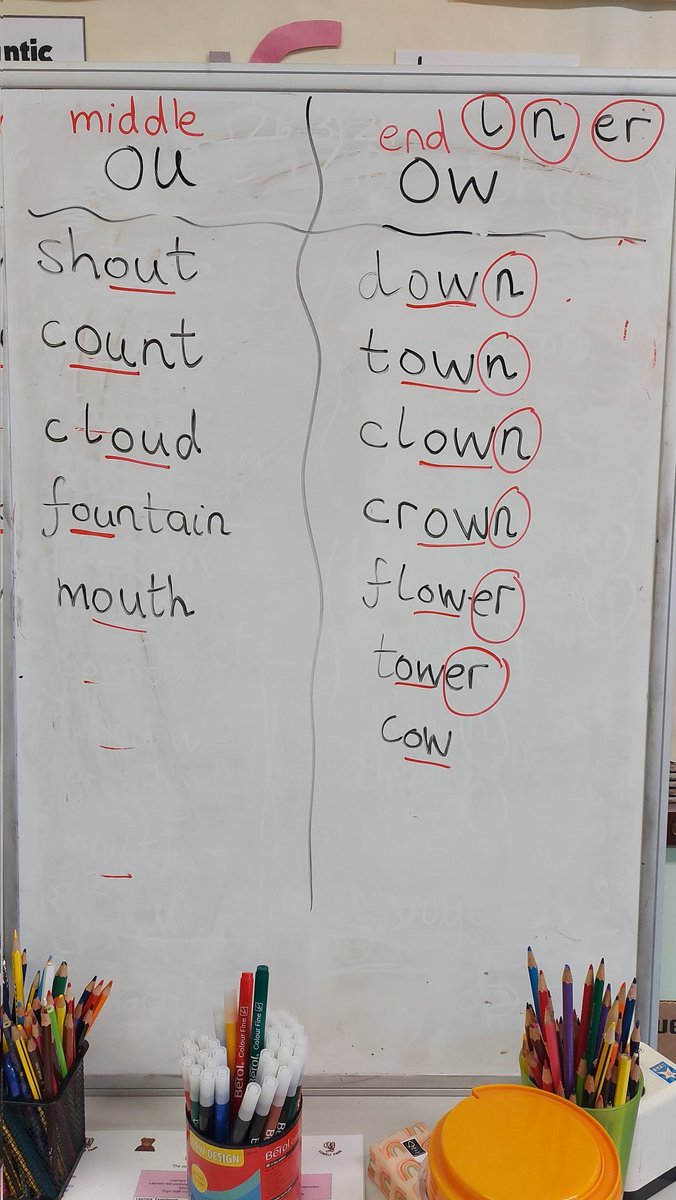 ntic
middle
ou
shout
count
cloud
fountain
mouth
end l n er
ow
down
town
clown
crown
flower
tower
cow
Berol Colour Fine
Berol Colour Fine
NEW DESIGN
Berol